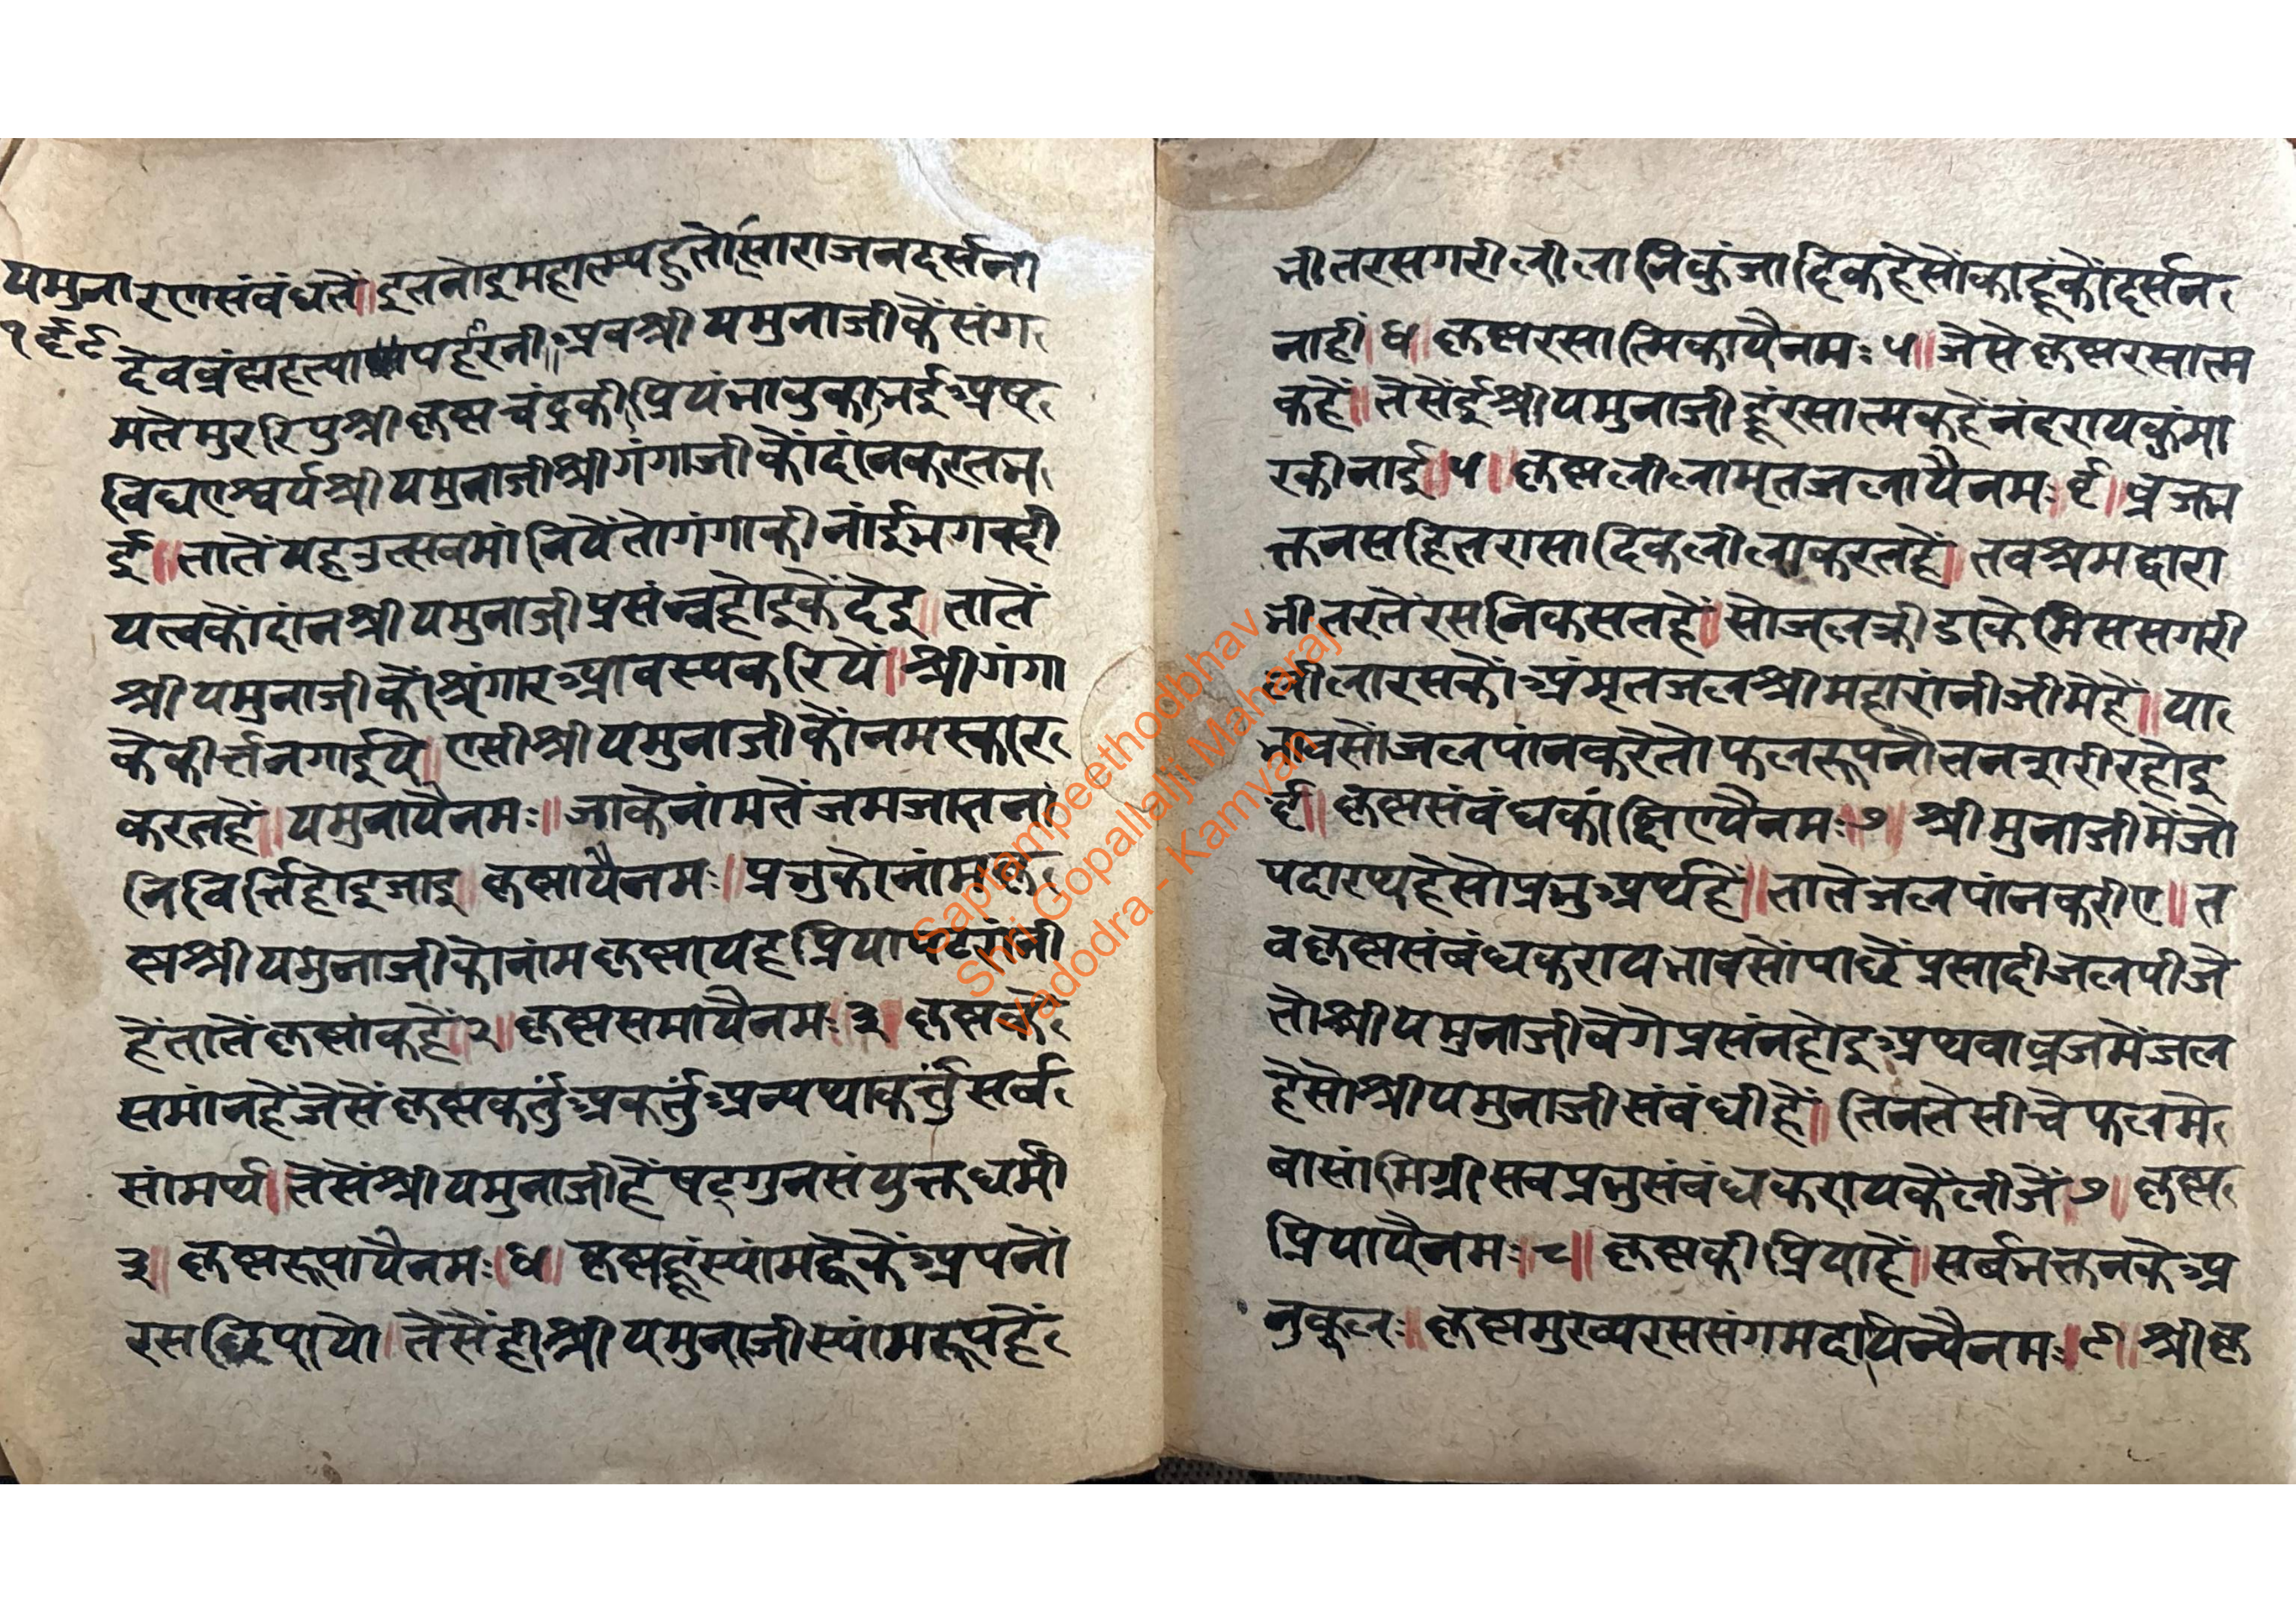 यमुना
१६९
रएासंबंधतें॥इतनोइमहात्म्यहुतोसाराजनदर्सनी
देवब्रंह्महत्यापहंरनी॥अवश्रीयमुनाजीकैंसंग
मतेमुररिपुश्रीकृष्णचंद्रकीप्रियंभावुकाभई॥अष्ट
विधएाश्वर्यश्रीयमुनाजीश्रीगंगाजीकौंदांनकरतभ
ई॥तातेंयहउत्सवमांनियेंतोगंगाकीनांईभगवदी
यत्वकौंदांनश्रीयमुनाजीप्रसंन्नहोइकैंदेइ॥तातें
श्रीयमुनाजीकौंश्रृंगारआवस्यकरियें॥श्रीगंगा
केकीर्त्तनगाईये॥एसीश्रीयमुनाजीकौंनमस्कार
करतहें॥यमुनायैनमः॥जाकेनांमतेंजमजातनां
निविर्त्तिहोइजाइ॥कृष्णायैनमः॥प्रभुकोनांमकृ
ष्णश्रीयमुनाजीकोनांमकृष्णायहप्रियापटरांनी
हेंतातेंकृष्णांकहें॥२॥कृष्णसमायैनमः॥३॥कृष्णके
समांनहेंजैसेंकृष्णकर्त्तुंअकर्त्तुंअन्यथाकर्त्तुंसर्व
सांमर्थ्य॥तेसेंश्रीयमुनाजीहेंषट्गुनसंयुक्तधर्मी
३॥कृष्णरूपायैनमः॥४॥कृष्णहूंस्यांमव्हेकेंअपनों
रसछिपायो॥तैसेंहीश्रीयमुनाजीस्यांमरूपहें
भीतरसगरीलीलानिकुंजादिकहेसोंकाहूंकोंदर्सन
नाहीं॥४॥कृष्णरसात्मिकायैनमः५॥जैसेकृष्णरसात्म
कहें॥तेसेंईश्रीयमुनाजीहूंरसात्मकहेंनंदरायकुंमा
रकीनाई॥५॥कृष्णलीलामृतजलायैनमः॥६॥व्रजभ
क्तनसहितरासादिकलीलाकरतहें॥तवश्रमद्वारा
भीतरतेंरसनिकसतहें॥सोजलक्रीडाकेमिससगरी
लीलारसकौंअंमृतजलश्रीमहारांनीजीमेहें॥या
भावसोंजलपांनकरेतोफलरूपनौतनत्रारीरहोइ
६॥कृष्णसंवंधकांछिएयैनमः॥७॥श्रीमुनाजीमेंजो
पदारथहेसोप्रभुअर्थहें॥तातेजलपांनकरीए॥त
वकृष्णसंबंधकरायभावसोंपाछेंप्रसादीजलपीजे
तोश्रीयमुनाजीवेगेप्रसंनहोइअथवाव्रजमेंजल
हेसोश्रीयमुनाजीसंबंधीहें॥तिनतेसीचेफलमे
बासांमिग्रीसबप्रभुसंबंधकरायकैंलीजें॥७॥कृष्ण
प्रियायैनमः॥८॥कृष्णकीप्रियाहें॥सर्बभक्तनकेअ
नुकूलः॥कृष्णमुख्यरससंगमदायिन्यैनमः॥९॥श्रीकृ
Saptampeethodbhav
Shri Gopallalji Maharaj
Vadodra - Kamvan